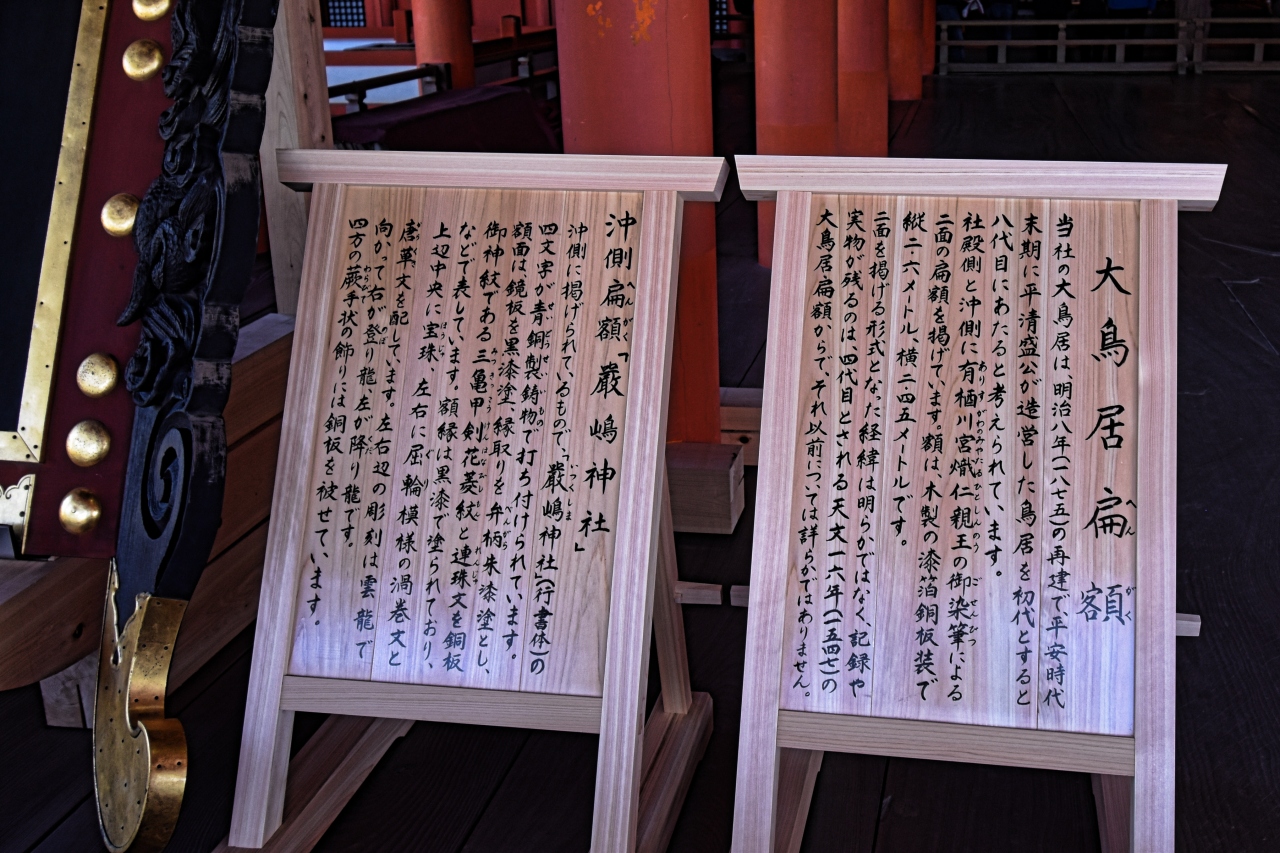 大鳥居扁額
当社の大鳥居は、明治八年(一八七五)の再建で平安時代
末期に平清盛公が造営した鳥居を初代とすると
八代目にあたると考えられています。
社殿側と沖側に有栖川宮熾仁親王の御染筆による
二面の扁額を掲げています。額は、木製の漆箔銅板装で
縦二・六メートル、横二・四五メートルです。
二面を掲げる形式となった経緯は明らかではなく、記録や
実物が残るのは、四代目とされる天文一六年(一五四七)の
大鳥居扁額からで、それ以前については詳らかではありません。
沖側扁額「厳嶋神社」
沖側に掲げられているもので、「厳嶋神社」(行書体)の
四文字が青銅製鋳物で打ち付けられています。
額面は鏡板を黒漆塗、縁取りを弁柄朱漆塗とし、
御神紋である三亀甲剣花菱紋と連珠文を銅板
などで表しています。額縁は黒漆で塗られており、
上辺中央に宝珠、左右に屈輪模様の渦巻文と
唐草文を配しています。左右辺の彫刻は雲龍で
向かって右が登り龍、左が降り龍です。
四方の蕨手状の飾りには銅板を被せています。